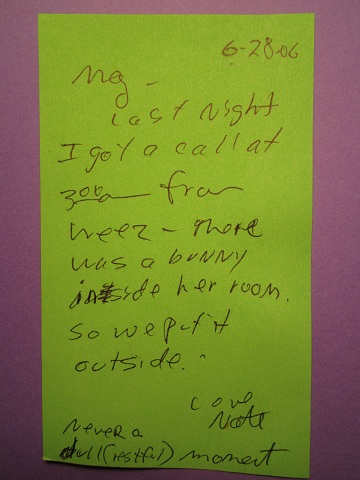 6-28-06
Meg -
Last Night
I got a call at
3:00a from
Weez - There
was a bunny
inside her room.
So we put it
outside.
Love
Nate
Never a
dull (restful) moment